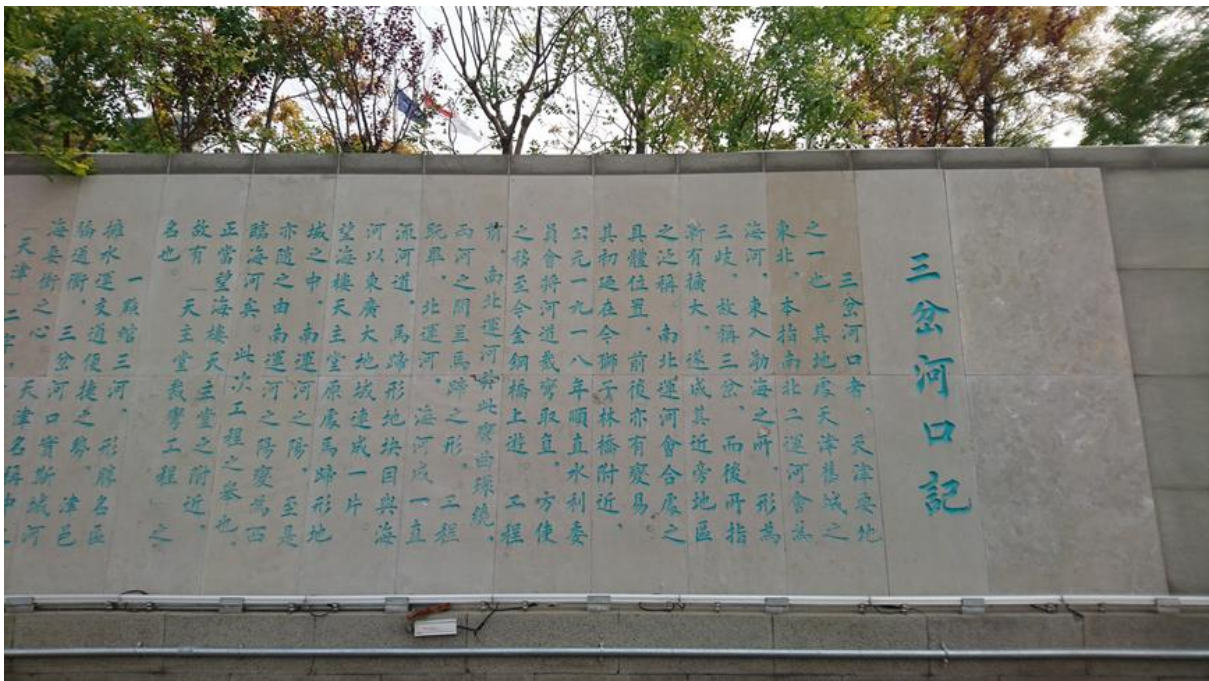 三岔河口記
三岔河口者、天津要地
之一也。其地處天津舊城之
東北。本指南北二運河會為
海河、東入勃海之所、形為
三歧、故稱三岔、而後所指
漸有擴大、遂成其近旁地區
之泛稱。南北運河會合處之
具體位置、前後亦有變易
其初廼在今獅子林橋附近
公元一九一八年順直水利委
員會將河道裁彎取直、方使
之移至今金鋼橋上遊 工程
前、南北運河於此彎曲環繞、
兩河之間呈馬蹄之形。工程
既畢、北運河、海河成一直
流河道、馬蹄形地块因與海
河以東廣大地域連成一片
望海樓天主堂原處馬蹄形地
域之中、南運河之陽、至是
亦隨之由南運河之陽變為西
臨海河矣。此次工程之舉也、
正當望海樓天主堂之附近、
故有 天主堂裁彎工程 之
名也
一點綰三河、形勝名區
擁水運交通便捷之勢、津邑
道衝、三岔河口實斯城河
海要衝之心 天津名稱中
天津二字